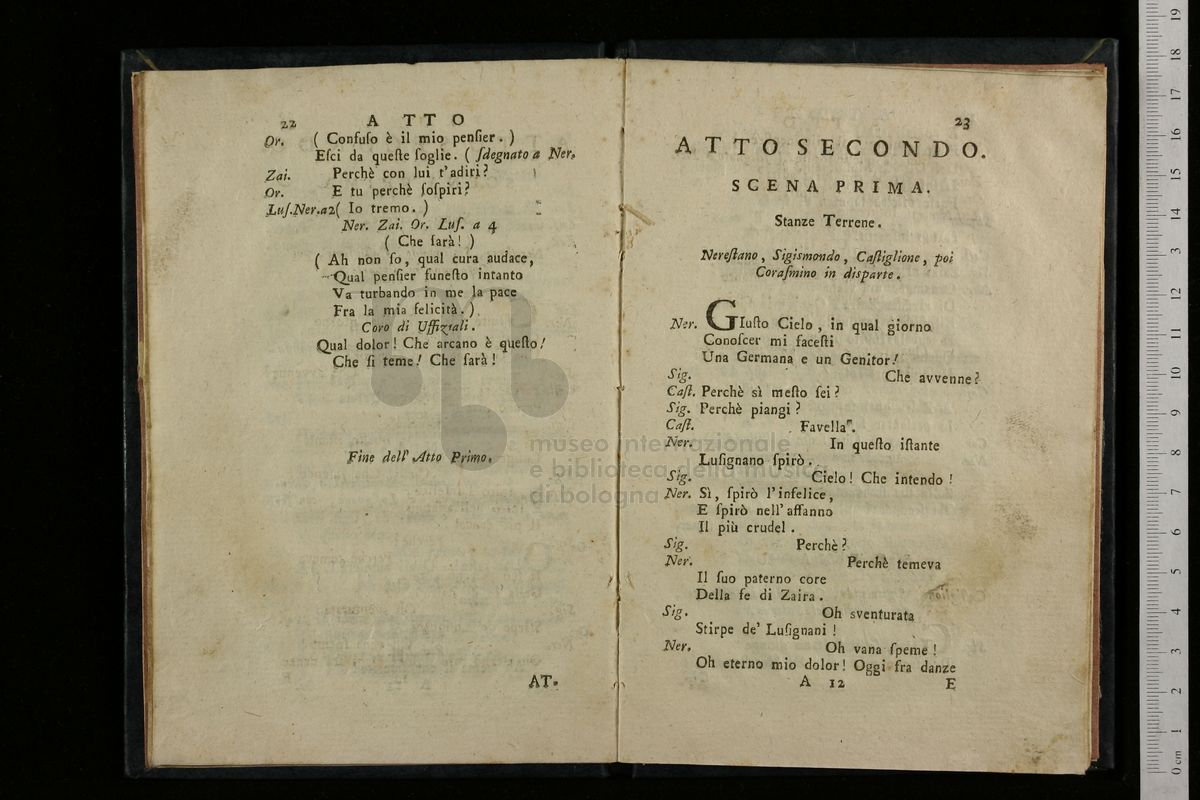 22 ATTO
Or. ( Confuſo è il mio penſier. )
Eſci da queſte ſoglie. ( ſdegnato a Ner.
Zai. Perchè con lui t'adiri?
Or. E tu perchè ſoſpiri?
Luſ.Ner.a2( Io tremo. )
Ner. Zai. Or. Luſ. a 4
( Che ſarà! )
( Ah non ſo, qual cura audace,
Qual penſier funeſto intanto
Va turbando in me la pace
Fra la mia felicità. )
Coro di Uffiziali.
Qual dolor! Che arcano è queſto!
Che ſi teme! Che ſarà!
Fine dell' Atto Primo.
AT-
23
ATTO SECONDO.
SCENA PRIMA.
Stanze Terrene.
Nereſtano, Sigismondo, Caſtiglione, poi
Coraſmino in disparte.
Ner. GIuſto Cielo, in qual giorno
Conoſcer mi faceſti
Una Germana e un Genitor!
Sig. Che avvenne?
Caſt. Perchè sì meſto ſei?
Sig. Perchè piangi?
Caſt. Favella.
Ner. In queſto iſtante
Luſignano ſpirò.
Sig. Cielo! Che intendo!
Ner. Sì, ſpirò l'infelice,
E ſpirò nell'affanno
Il più crudel.
Sig. Perchè?
Ner. Perchè temeva
Il ſuo paterno core
Della fe di Zaira.
Sig. Oh sventurata
Stirpe de' Luſignani!
Ner. Oh vana ſpeme!
Oh eterno mio dolor! Oggi fra danze
A 12 E
museo internazionale
e biblioteca della musica
di bologna
0 cm 1 2 3 4 5 6 7 8 9 10 11 12 13 14 15 16 17 18 19